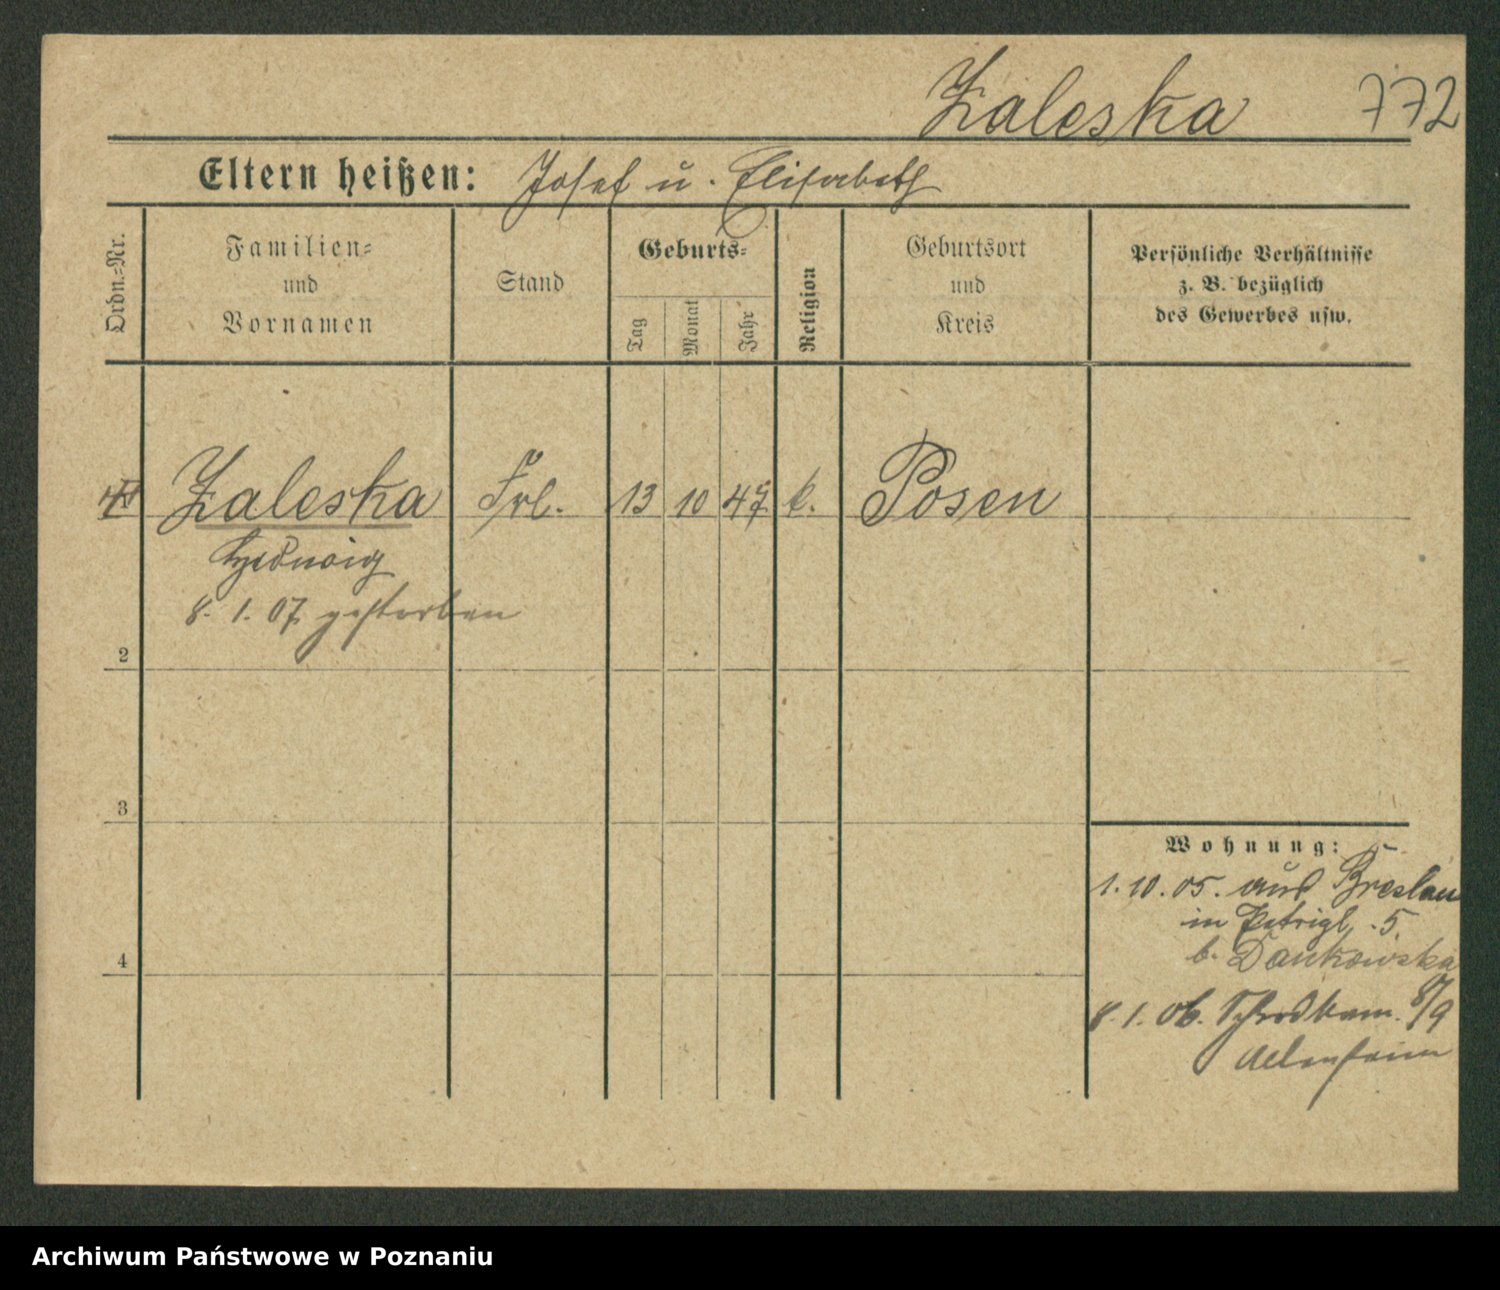 Zaleska 772
Eltern heißen: Josef u. Elisabeth
Ordn.-Nr.
Familien-
und
Vornamen
Stand
Geburts-
Tag
Monat
Jahr
Religion
Geburtsort
und
Kreis
Persönliche Verhältnisse
z. B. bezüglich
des Gewerbes usw.
Zaleska Frl. 13 10 47 k. Posen
Hedwig
8. 1. 07 gestorben
2
3
4
Wohnung:
1. 10. 05. aus Breslau
in Petripl. 5.
b. Dankowska
8. 1. 06. 8/9